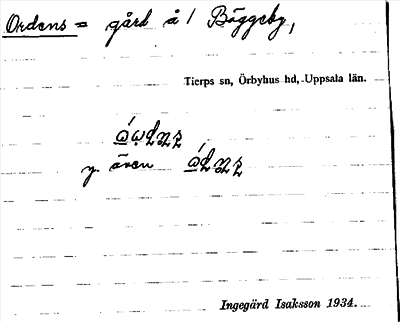 Ordens = gård å / Böggeby,
Tierps sn, Örbyhus hd, Uppsala län.
y. även
Ingegärd Isaksson 1934.